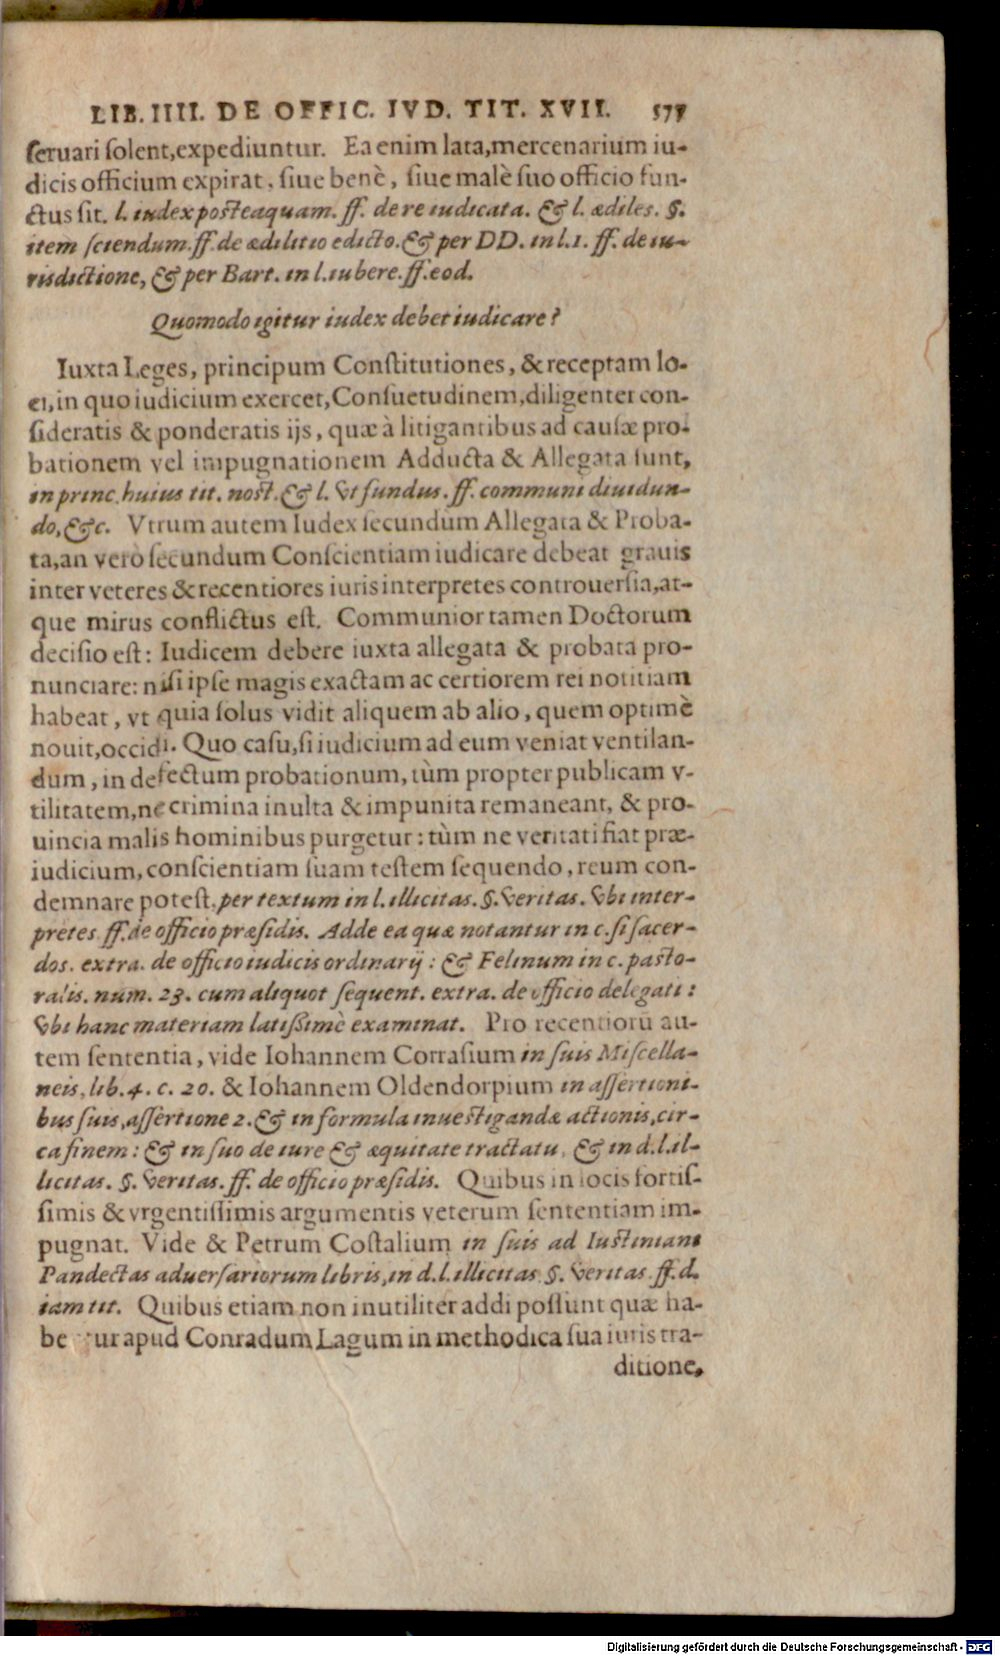 LIB. IIII. DE OFFIC. IVD. TIT. XVII. 577
ſeruari ſolent,expediuntur. Ea enim lata,mercenarium iu-
dicis officium expirat, ſiue benè, ſiue malè ſuo officio fun-
ctus ſit. l. iudex posteaquam. ff. de re iudicata. & l. ædiles. §.
item ſciendum.ff.de ædilitio edicto.& per DD. in l.1. ff. de iu-
risdictione, & per Bart. in l.iubere.ff.eod.
Quomodo igitur iudex debet iudicare?
Iuxta Leges, principum Conſtitutiones, & receptam lo-
ci,in quo iudicium exercet,Conſuetudinem,diligenter con-
ſideratis & ponderatis ijs, quæ à litigantibus ad cauſæ pro-
bationem vel impugnationem Adducta & Allegata ſunt,
in princ.huius tit. nost.& l. vt fundus. ff. communi diuidun-
do,&c. Vtrum autem Iudex ſecundùm Allegata & Proba-
ta,an verò ſecundum Conſcientiam iudicare debeat grauis
inter veteres & recentiores iuris interpretes controuerſia,at-
que mirus conflictus eſt. Communior tamen Doctorum
deciſio eſt: Iudicem debere iuxta allegata & probata pro-
nunciare: niſi ipſe magis exactam ac certiorem rei notitiam
habeat, vt quia ſolus vidit aliquem ab alio, quem optimè
nouit,occidi. Quo caſu,ſi iudicium ad eum veniat ventilan-
dum, in defectum probationum, tùm propter publicam v-
tilitatem,ne crimina inulta & impunita remaneant, & pro-
uincia malis hominibus purgetur: tùm ne veritati fiat præ-
iudicium,conſcientiam ſuam teſtem ſequendo, reum con-
demnare poteſt,per textum in l. illicitas. §.veritas. vbi inter-
pretes ff.de officio præſidis. Adde ea quæ notantur in c.ſi ſacer-
dos. extra. de officio iudicis ordinarij: & Felinum in c. pasto-
ralis. num. 23. cum aliquot ſequent. extra. de officio delegati:
vbi hanc materiam latißimè examinat. Pro recentiorū au-
tem ſententia, vide Iohannem Corraſium in ſuis Miſcella-
neis, lib. 4. c. 20. & Iohannem Oldendorpium in aſſertioni-
bus ſuis,aſſertione 2.& in formula inuestigandæ actionis,cir-
ca finem: & in ſuo de iure & æquitate tractatu, & in d.l.il-
licitas. §. veritas. ff. de officio præſidis. Quibus in locis fortiſ-
ſimis & vrgentiſſimis argumentis veterum ſententiam im-
pugnat. Vide & Petrum Coſtalium in ſuis ad Iustiniani
Pandectas aduerſariorum libris,in d.l.illicitas §. veritas ff.d.
iam tit. Quibus etiam non inutiliter addi poſſunt quæ ha-
be tur apud Conradum Lagum in methodica ſua iuris tra-
ditione,
Digitalisierung gefördert durch die Deutsche Forschungsgemeinschaft - DFG